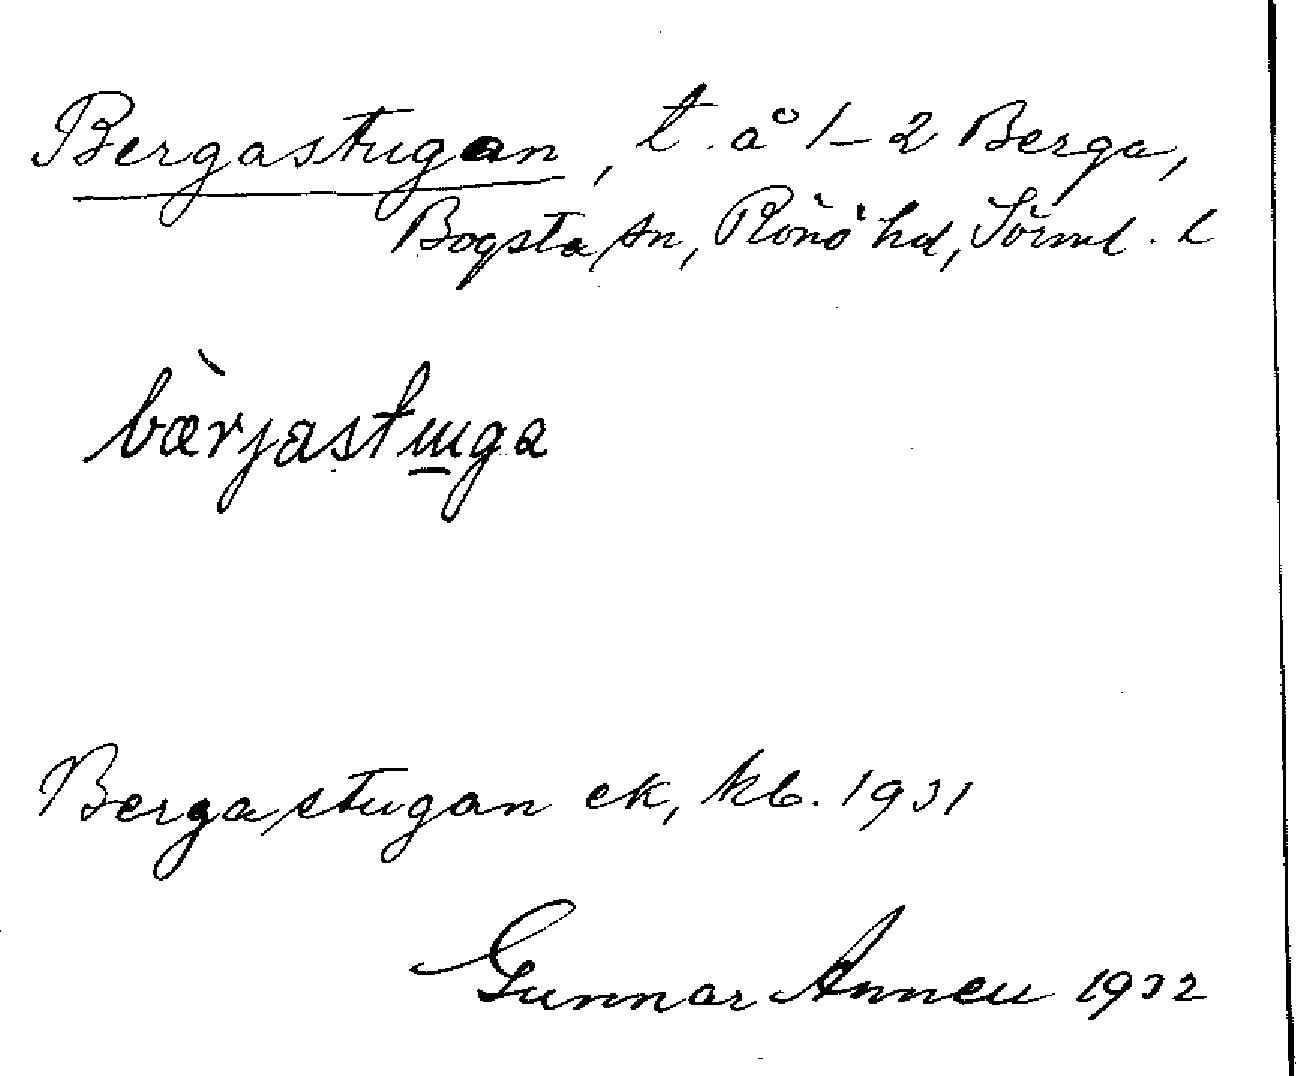 Bergastugan, t. å 1–2 Berga,
Bogsta sn, Rönö hd, Sörml. l
bæ̀rjastuga
Bergastugan ek, kb. 1931
Gunnar Annell 1932